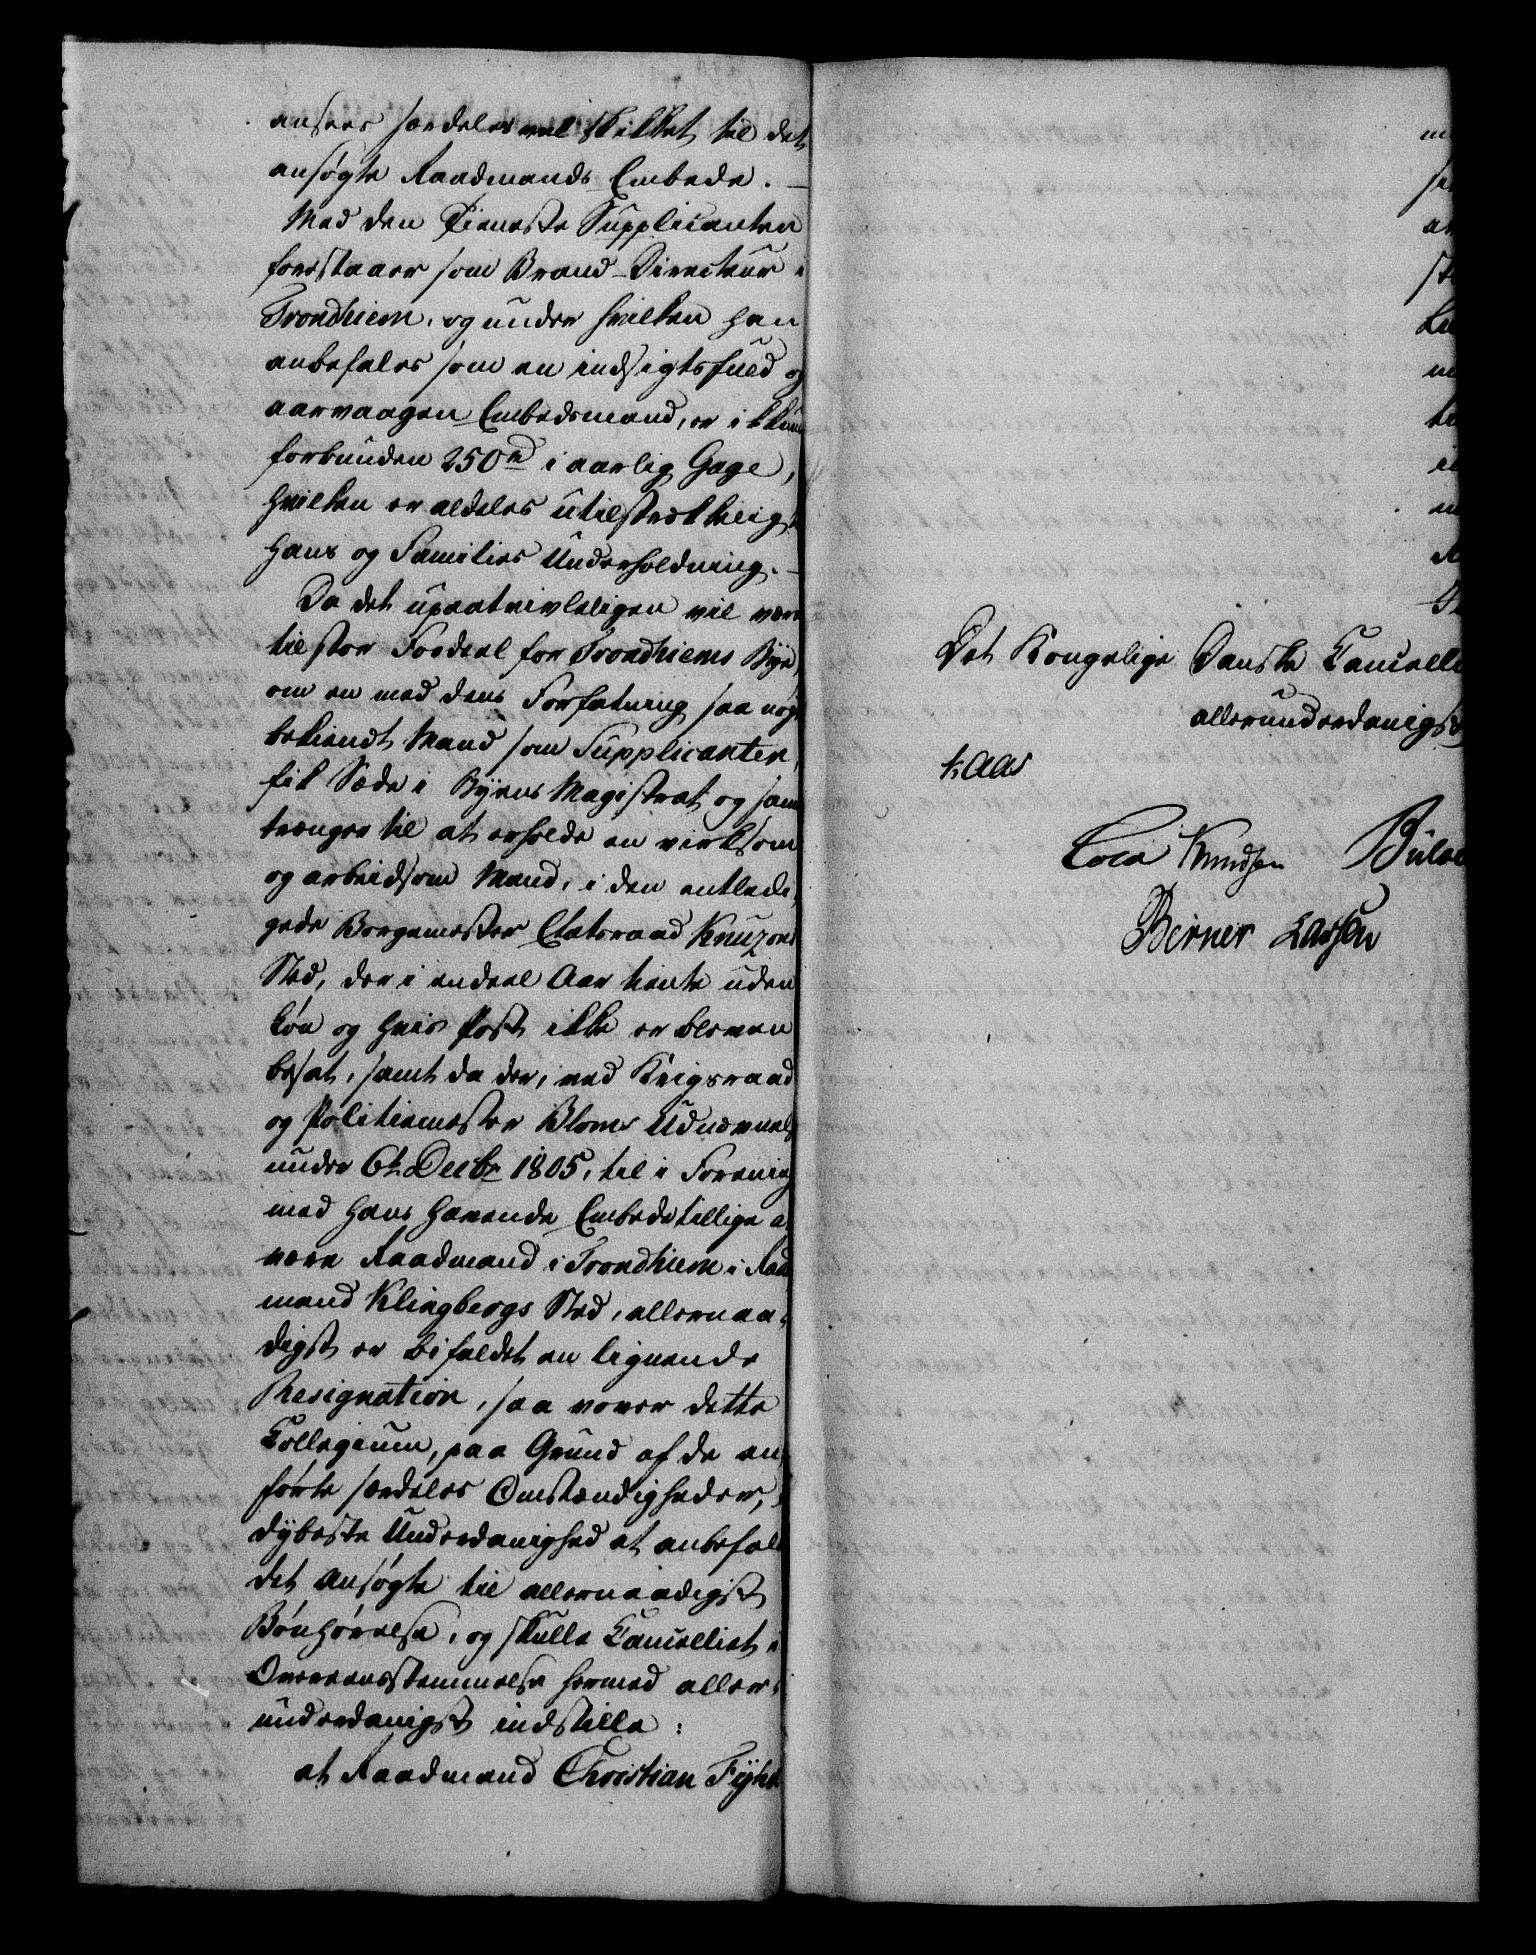 ansees særdeles vel skikket til det
ansøgte Raadmands Embede. —
Med den Tieneste Supplicanten
forestaaer som Brand-Directeur i
Trondhiem, og under hvilken han
anbefales som en indsigtsfuld og
aarvaagen Embedsmand, er ikkun
forbunden 250 rd i aarlig Gage,
hvilken er aldeles utilstrækkelig t
hans og Families Underholdning. —
Da det upaatvivleligen vil være
til stor Fordeel for Trondhiems Bye,
om en med dens Forfatning saa nøye
bekiendt Mand som Supplicanten,
fik Sæde i Byens Magistrat og sam
trænger til at erholde en virksom
og arbeidsom Mand, i den entledi-
gede Borgemester Etatsraad Knuzons
Sted, der i endeel Aar tiente uden
Løn og hvis Post ikke er bleven
besat, samt da der, ved Krigsraad
og Politiemester Bloms Udnævnels
under 6t Decbr 1805, til i Forening
med hans havende Embede tillige a
være Raadmand i Trondhiem i Raad
mand Klingbergs Sted, allernaa-
digst er bifaldet en lignende
Resignation, saa vover dette
Collegium, paa Grund af de an
førte særdeles Omstændigheder, i
dybeste Underdanighed at anbefale
det Ansøgte til allernaadigst
Bønhørelse, og skulle Cancelliet i
Overeensstemmelse hermed aller-
underdanigst indstille:
at Raadmand Christian Fyhn
Det Kongelige Danske Cancellie
allerunderdanigst
Kaas
Cold Knudsen Bülow
Berner Lassen